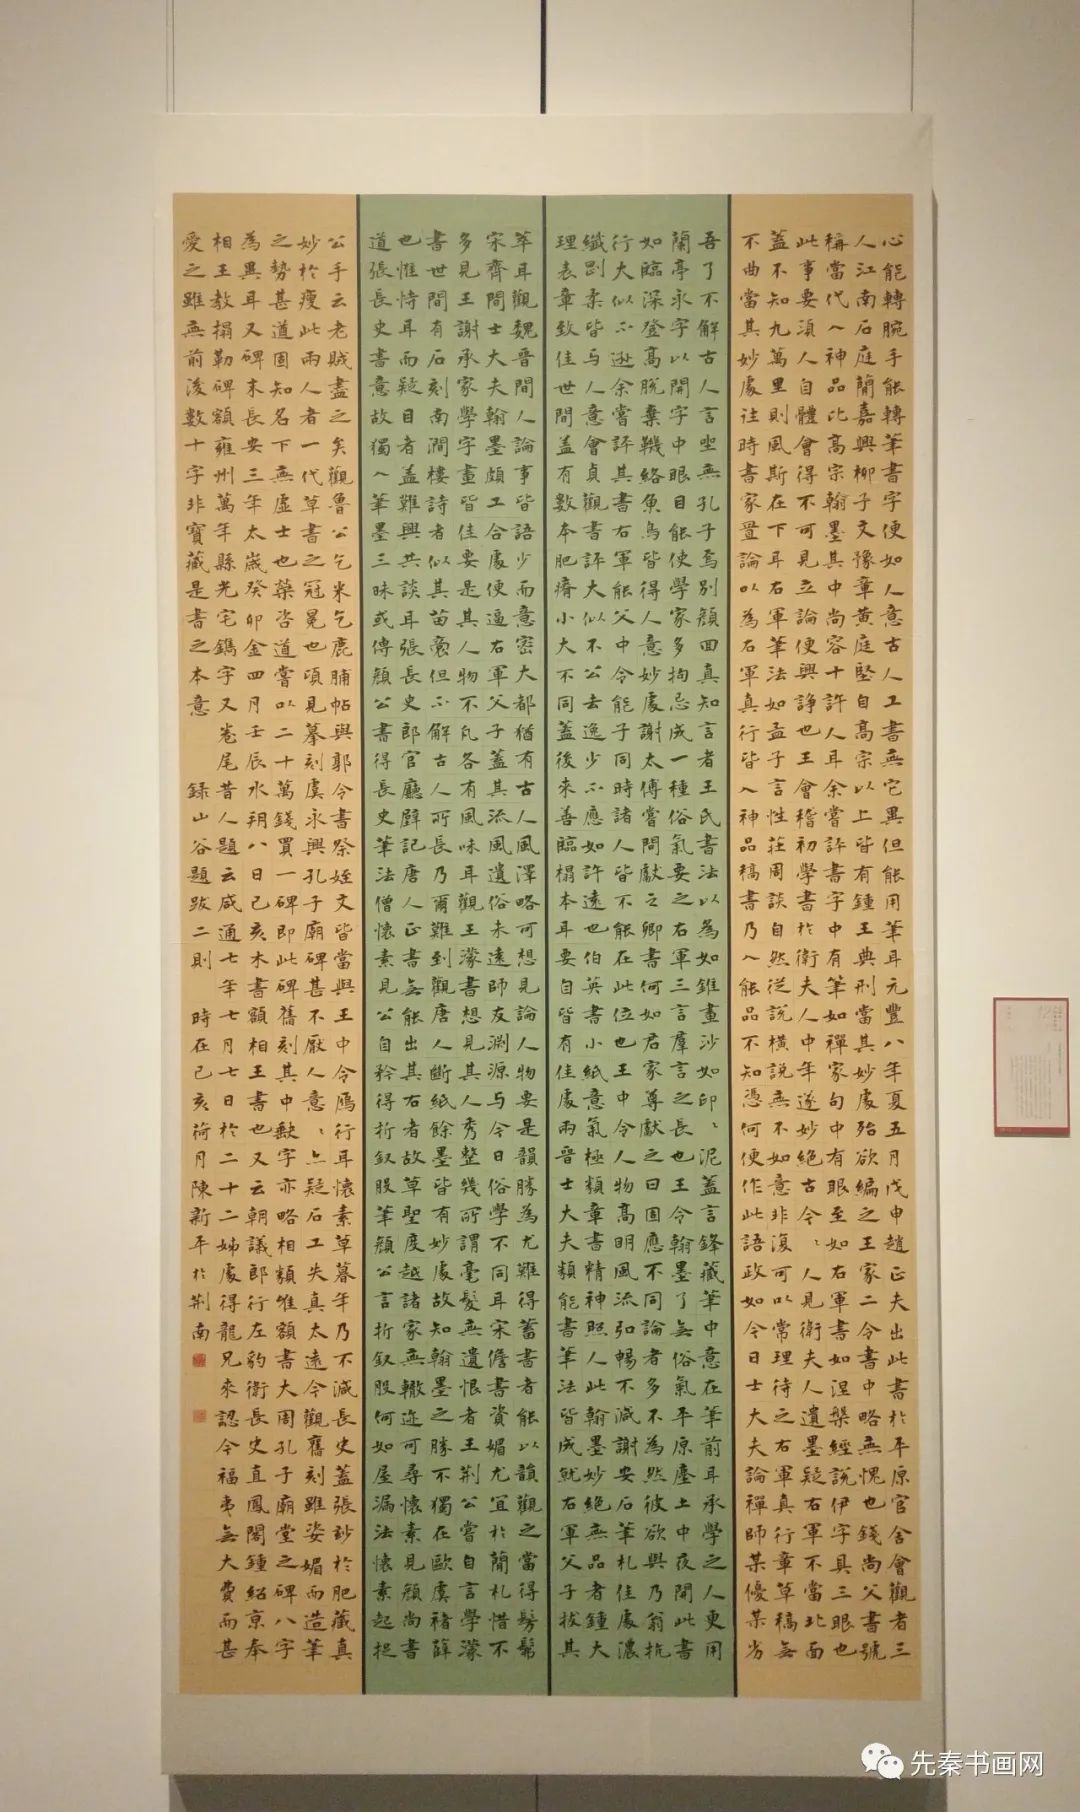 心能轉腕手能轉筆書字便如人意古人工書無它異但能用筆耳元豐八年夏五月戊申趙正夫出此書於平原官舍會觀者三
人江南石庭簡嘉興柳子文豫章黃庭堅自高宗以上皆有鍾王典刑當其妙處殆欲編之王家二令書中略無愧也錢尚父書號
稱當代入神品比高宗翰墨其中尚容十許人耳余嘗評書字中有筆如禪家句中有眼至如右軍書如涅槃經說伊字具三眼也
此事要須人自體會得不可見立論便興諍也王會稽初學書於衛夫人中年遂妙絕古今〻人見衛夫人遺墨疑右軍不當北面
蓋不知九萬里則風斯在下耳右軍筆法如孟子言性莊周談自然從說橫說無不如意非復可以常理待之右軍真行章草稿無
不曲當其妙處往時書家置論以為右軍真行皆入神品稿書乃入能品不知憑何便作此語政如今日士大夫論禪師某優某劣
吾了不解古人言坐無孔子焉別顏回真知言者王氏書法以為如錐畫沙如印〻泥蓋言鋒藏筆中意在筆前耳承學之人更用
蘭亭永字以開字中眼目能使學家多拘忌成一種俗氣要之右軍二言羣言之長也王令翰墨了無俗氣平原塵上中夜開此書
如臨深登高脫棄羈絡魚鳥皆得人意妙處謝太傅嘗問獻之卿書何如君家尊獻之曰固應不同論者多不為然彼欲與乃翁抗
行大似不遜余嘗評其書右軍能父中令能子同時諸人皆不能在此位也王中令人物高明風流弘暢不減謝安石筆札佳處濃
纖剛柔皆与人意會貞觀書評大似不公去逸少不應如許遠也伯英書小紙意氣極類章書精神照人此翰墨妙絕無品者鍾大
理表章致佳世間蓋有數本肥瘠小大不同蓋後來善臨榻本耳要自皆有佳處兩晉士大夫類能書筆法皆成就右軍父子拔其
萃耳觀魏晉間人論事皆語少而意密大都猶有古人風澤略可想見論人物要是韻勝為尤難得蓄書者能以韻觀之當得髣髴
宋齊間士大夫翰墨頗工合處便逼右軍父子蓋其流風遺俗未遠師友淵源与今日俗學不同耳宋儋書資媚尤宜於簡札惜不
多見王謝承家學字畫皆佳要是其人物不凡各有風味耳觀王濛書想見其人秀整幾所謂毫髮無遺恨者王荊公嘗自言學濛
書世間有石刻南澗樓詩者似其苗裔但不解古人所長乃爾難到觀唐人斷紙餘墨皆有妙處故知翰墨之勝不獨在歐虞褚薛
也惟恃耳而疑目者蓋難興共談耳張長史郎官廳壁記唐人正書無能出其右者故草聖度越諸家無轍迹可尋懷素見顏尚書
道張長史書意故獨入筆墨三昧或傳顏公書得長史筆法僧懷素見公自矜得折釵股筆顏公言折釵股何如屋漏法懷素起捉
公手云老賊盡之矣觀魯公乞米乞鹿脯帖與郭令書祭姪文皆當與王中令鴈行耳懷素草暮年乃不減長史蓋張妙於肥藏真
妙於瘦此兩人者一代草書之冠冕也頃見摹刻虞永興孔子廟碑甚不厭人意〻亦疑石工失真太遠今觀舊刻雖姿媚而造筆
之勢甚遒固知名下無虛士也榮咨道嘗以二十萬錢買一碑即此碑舊刻其中缺字亦略相類惟額書大周孔子廟堂之碑八字
為異耳又碑末長安三年太歲癸卯金四月壬辰水朔八日己亥木書額相王書也又云朝議郎行左豹衛長史直鳳閣鍾紹京奉
相王教榻勒碑額雍州萬年縣光宅鐫字又卷尾昔人題云咸通七年七月七日於二十二姊處得龍兄來認今福夷無大費而甚
愛之雖無前後數十字非寶藏是書之本意 錄山谷題跋二則 時在己亥荷月陳新平於荊南
先秦书画网